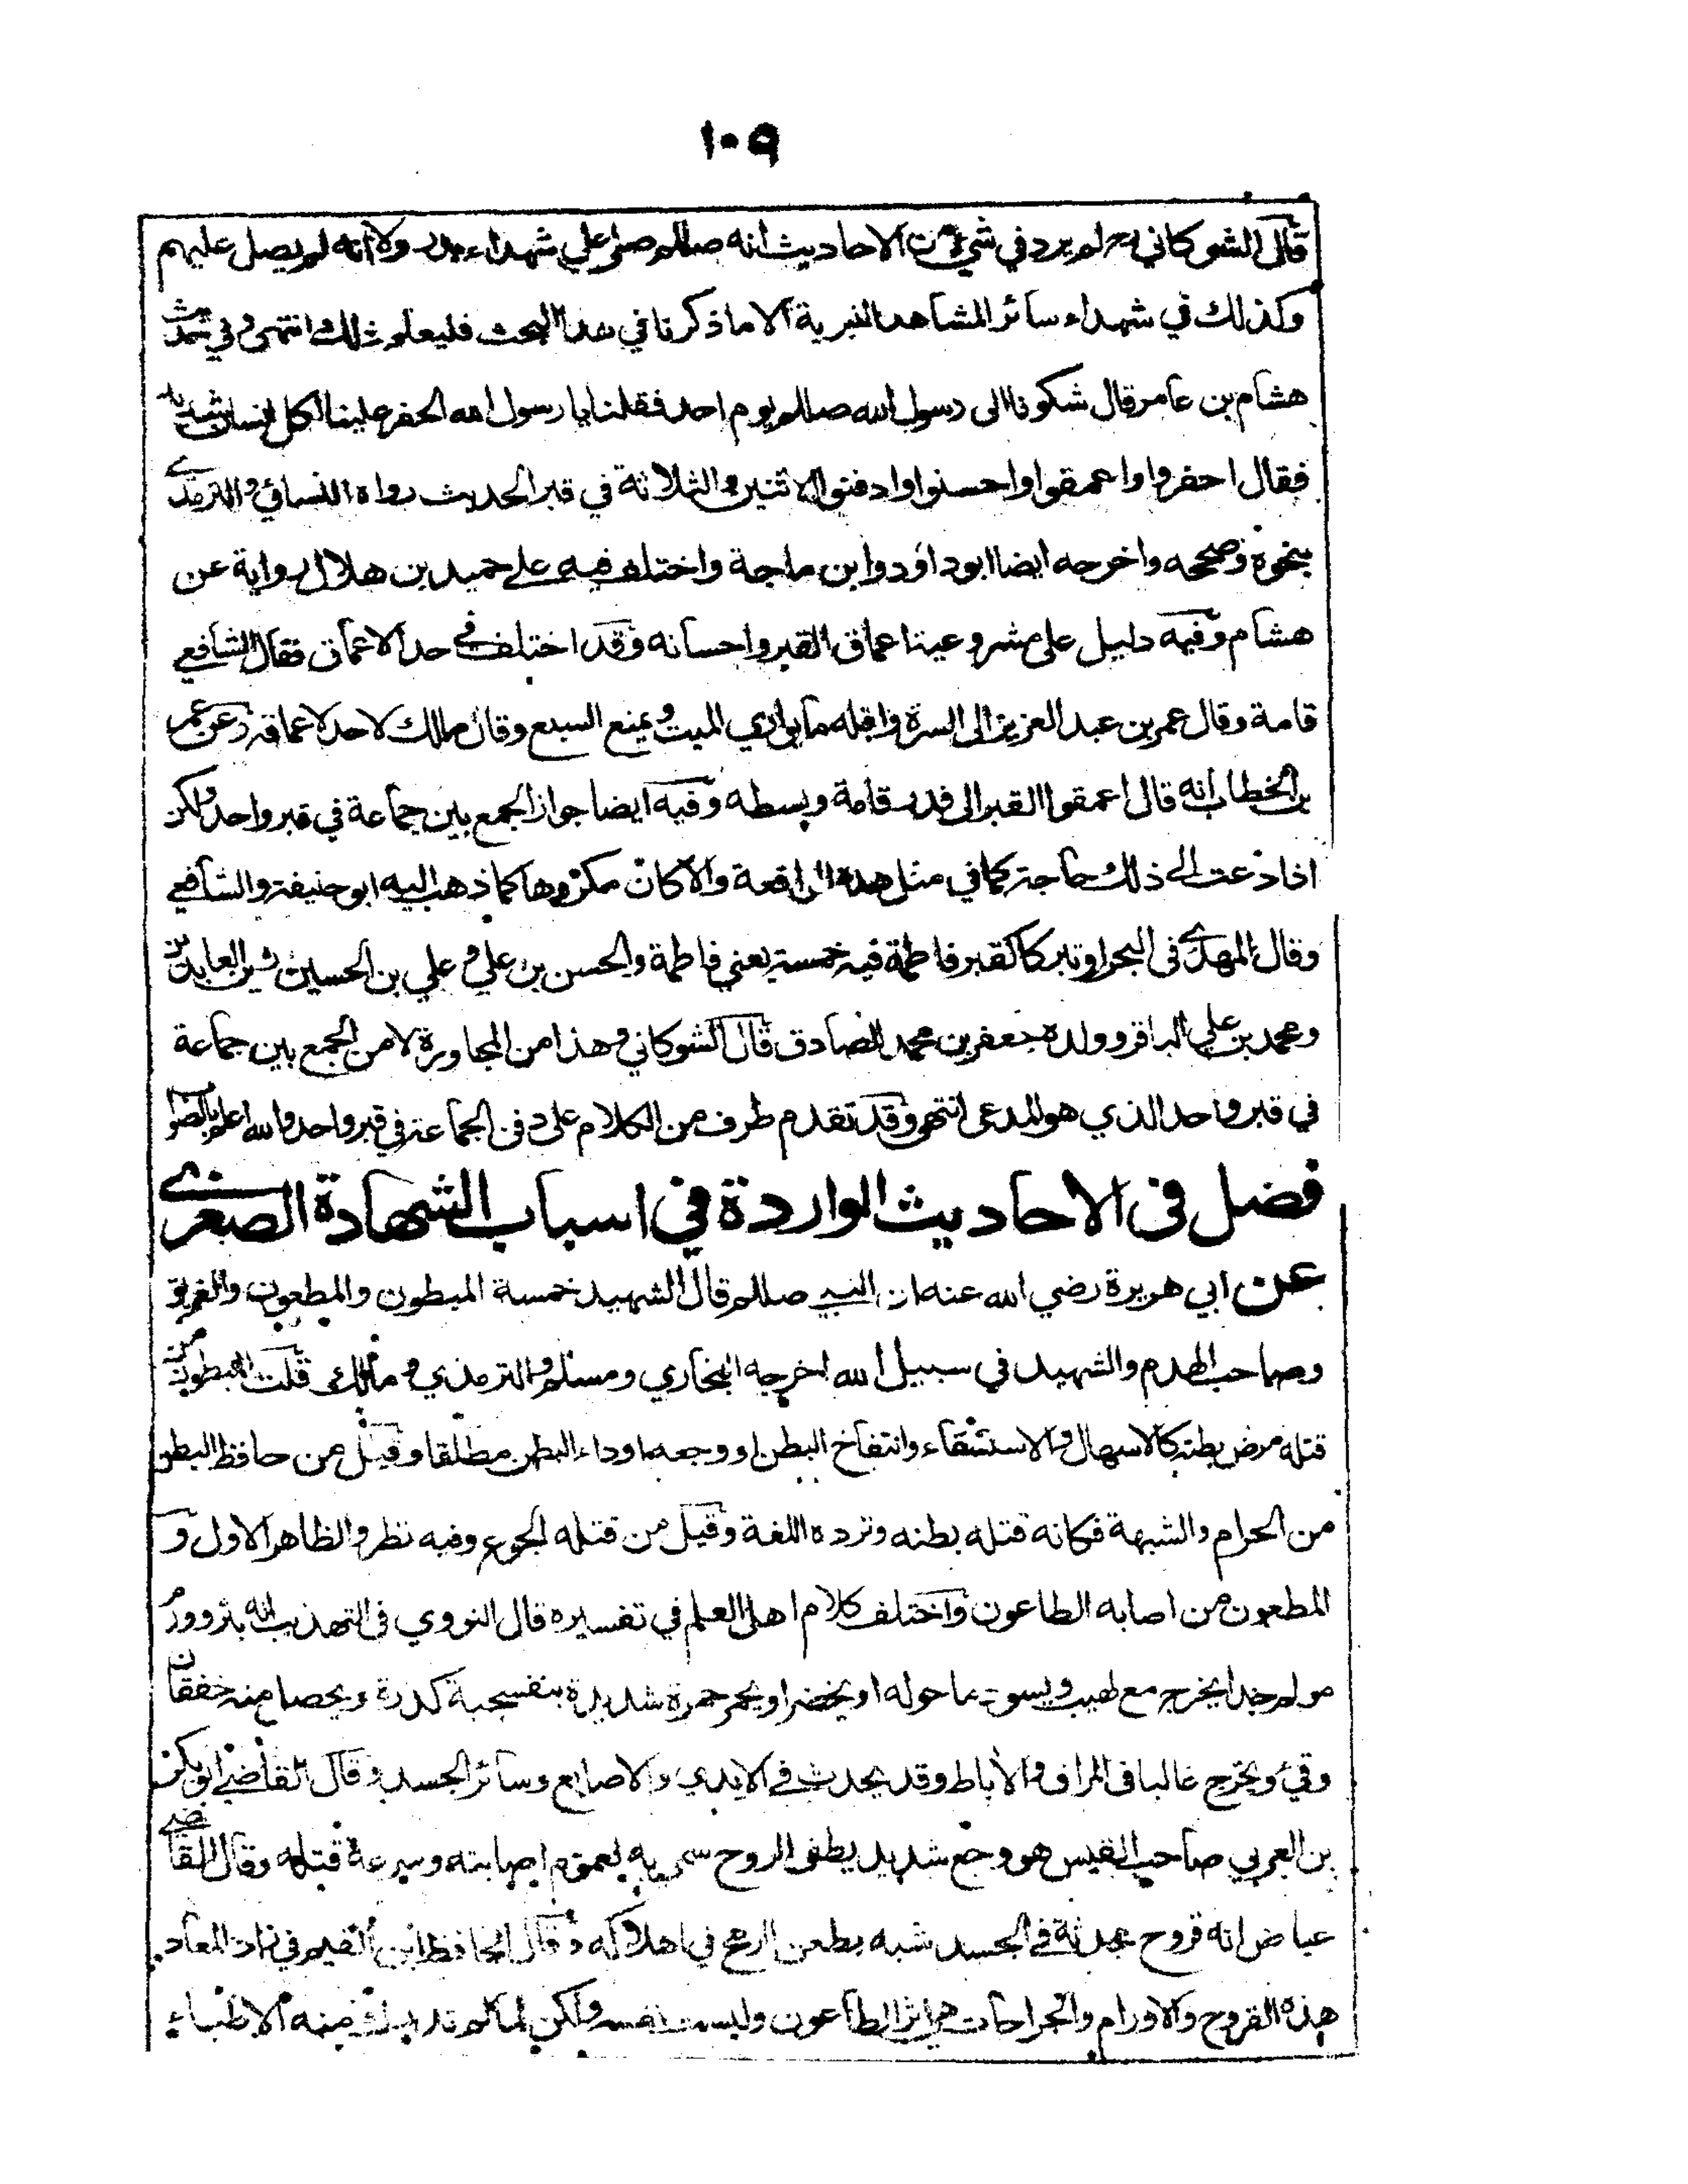 ١٠٩
قال الشوكاني رح لم يرد في شيء من الاحاديث انه صللم صلى على شهداء بدر ولا انه لم يصل عليهم
وكذلك في شهداء سائر المشاهد النبوية الا ما ذكرنا في هذا البحث فليعلم ذلك انتهى وفي حديث
هشام بن عامر قال شكونا الى رسول الله صللم يوم احد فقلنا يا رسول الله الحفر علينا لكل انسان شديد
فقال احفروا واعمقوا واحسنوا وادفنوا الاثنين والثلاثة في قبر الحديث رواه النسائي والترمذي
بنحوه وصححه واخرجه ايضا ابو داود وابن ماجة واختلف فيه على حميد بن هلال رواية عن
هشام وفيه دليل على مشروعية اعماق القبر واحسانه وقد اختلف في حد الاعماق فقال الشافعي
قامة وقال عمر بن عبد العزيز الى السرة واقله ما يواري الميت ويمنع السبع وقال مالك لا حد لاعماقه وعن عمر
بن الخطاب انه قال اعمقوا القبر الى قدر قامة وبسطه وفيه ايضا جواز الجمع بين جماعة في قبر واحد ولكن
اذا دعت الى ذلك حاجة كما في مثل هذه الواقعة والا كان مكروها كما ذهب اليه ابو حنيفة والشافعي
وقال المهدي في البحر او تبركا كقبر فاطمة فيه خمسة يعني فاطمة والحسن بن علي وعلي بن الحسين زين العابدين
ومحمد بن علي الباقر وولده جعفر بن محمد الصادق قال الشوكاني وهذا من المجاورة لا من الجمع بين جماعة
في قبر واحد الذي هو المدعى انتهى وقد تقدم طرف من الكلام على دفن الجماعة في قبر واحد والله اعلم بالصواب
فصل في الاحاديث الواردة في اسباب الشهادة الصغرى
عن ابي هريرة رضي الله عنه ان النبي صللم قال الشهيد خمسة المبطون والمطعون والغريق
وصاحب الهدم والشهيد في سبيل الله اخرجه البخاري ومسلم والترمذي ومالك قلت المبطون من
قتله مرض بطنه كالاسهال والاستسقاء وانتفاخ البطن او وجعه او داء البطن مطلقا وقيل من حافظ البطن
من الحرام والشبهة فكانه قتله بطنه وترده اللغة وقيل من قتله الجوع وفيه نظر والظاهر الاول و
المطعون من اصابه الطاعون واختلف كلام اهل العلم في تفسيره قال النووي في التهذيب انه بثر وورم
مولم جدا يخرج مع لهيب ويسود ما حوله او يخضر او يحمر حمرة شديدة بنفسجية كدرة ويحصل منه خفقان
وقيء ويخرج غالبا في المراق والاباط وقد يحدث في الايدي والاصابع وسائر الجسد وقال القاضي ابو بكر
بن العربي صاحب القبس هو وجع شديد يطفى الروح سمي به لعموم اصابته وسرعة قتله وقال القاضي
عياض انه قروح محدثة في الجسد شبه بطعن الرمح في اهلاكه وقال الحافظ ابن القيم في زاد المعاد
هذه القروح والاورام والجراحات هي اثر الطاعون وليست نفسه ولكن لما لم تدرك منه الاطباء